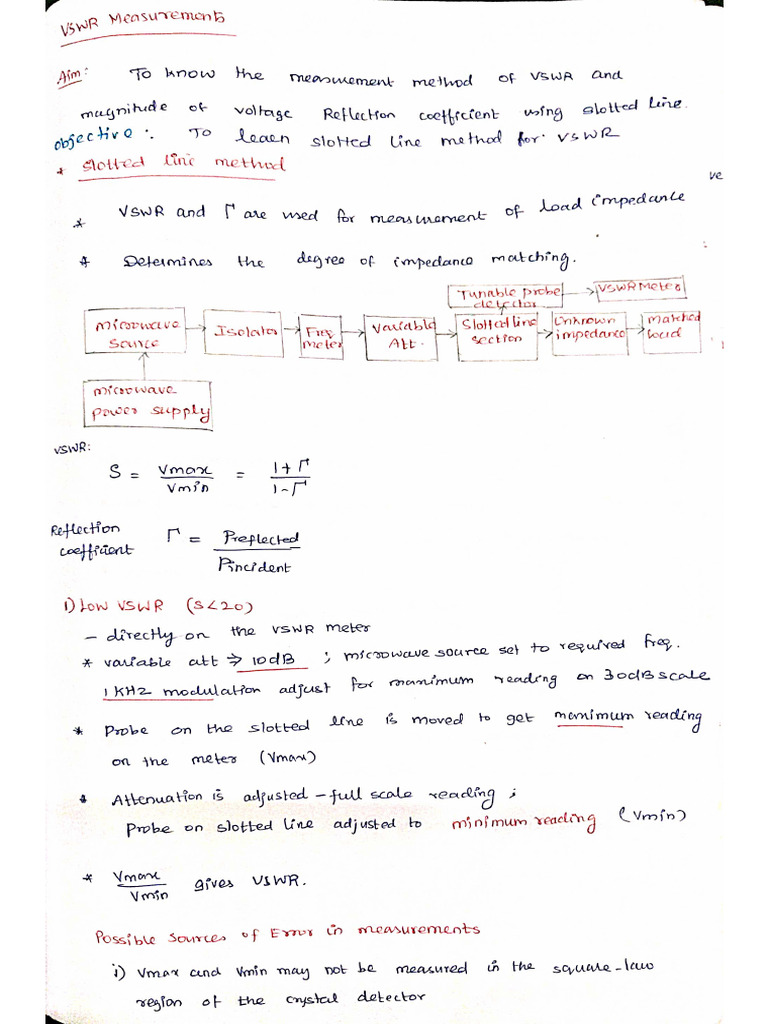 VSWR Measurements
Aim: To know the measurement method of VSWR and
magnitude of voltage Reflection coefficient using slotted line.
objective: To learn slotted line method for VSWR
* Slotted line method
ve
* VSWR and Γ are used for measurement of load impedance
* Determines the degree of impedance matching.
Tunable probe detector → VSWR Meter
Microwave Source → Isolator → Freq meter → Variable Att. → Slotted line section → Unknown impedance → Matched load
microwave
power supply
VSWR:
S = Vmax / Vmin = 1+Γ / 1-Γ
Reflection coefficient Γ = Preflected / Pincident
1) Low VSWR (S<20)
- directly on the VSWR meter
* variable att ⇒ 10dB ; microwave source set to required freq.
1 KHz modulation adjust for maximum reading on 30dB scale
* Probe on the slotted line is moved to get maximum reading
on the meter (Vmax)
* Attenuation is adjusted - full scale reading ;
Probe on slotted line adjusted to minimum reading (Vmin)
* Vmax / Vmin gives VSWR.
Possible Sources of Error in measurements
i) Vmax and Vmin may not be measured in the square-law
region of the crystal detector